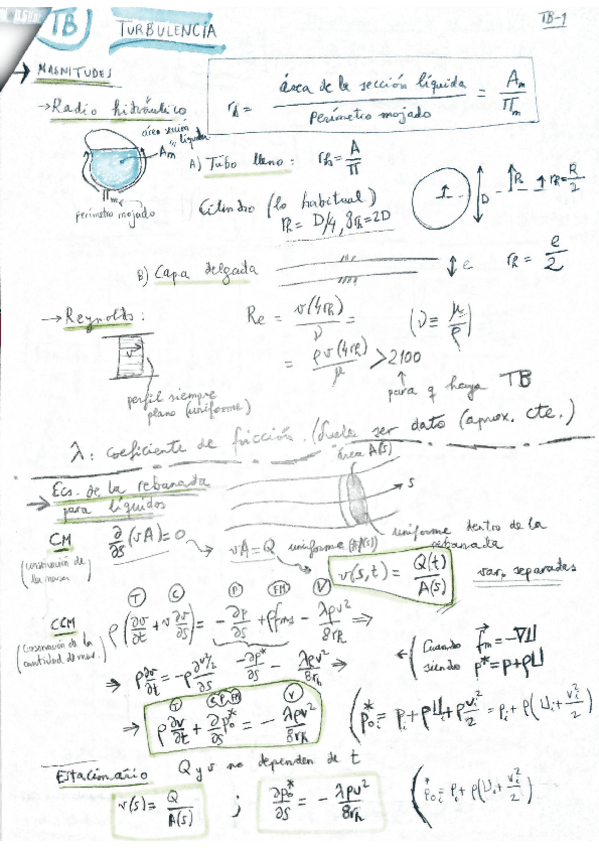 TB TURBULENCIA TB-1
→ MAGNITUDES
→ Radio hidráulico
r_h = área de la sección líquida / Perímetro mojado = A_m / Π_m
área sección líquida
A_m
Π_m
perímetro mojado
A) Tubo lleno: r_h = A/Π
Cilindro (lo habitual)
r_h = D/4, 8r_h = 2D
D R r_h = R/2
B) Capa delgada e r_h = e/2
→ Reynolds: Re = v(4r_h)/ν = (ν ≡ μ/ρ)
= ρv(4r_h)/μ > 2100
v
para q haya TB
perfil siempre
plano (uniforme)
λ: coeficiente de fricción. (Suele ser dato (aprox. cte.)
área A(s)
→ Ecs. de la rebanada
para líquidos
s
uniforme dentro de la
rebanada
CM ∂/∂s (vA) = 0 vA = Q uniforme
(conservación de
la masa)
v(s,t) = Q(t)/A(s) var. separadas
T C P FM V
CCM ρ(∂v/∂t + v ∂v/∂s) = -∂p/∂s + ρf_ms - λρv²/8r_h ⇒
(conservación de la
cantidad de mov.)
Cuando f_m = -∇U
siendo p* = p + ρU
⇒ ρ ∂v/∂t = -ρ ∂v²/2/∂s - ∂p*/∂s - λρv²/8r_h ⇒
T C P FM V
⇒ ρ ∂v/∂t + ∂/∂s p₀* = - λρv²/8r_h
(p*₀ᵢ = pᵢ + ρUᵢ + ρ vᵢ²/2 = pᵢ + ρ(Uᵢ + vᵢ²/2)
Estacionario Q y v no dependen de t
v(s) = Q/A(s) ; ∂p₀*/∂s = - λρv²/8r_h
(p*₀ᵢ = pᵢ + ρ(Uᵢ + vᵢ²/2)